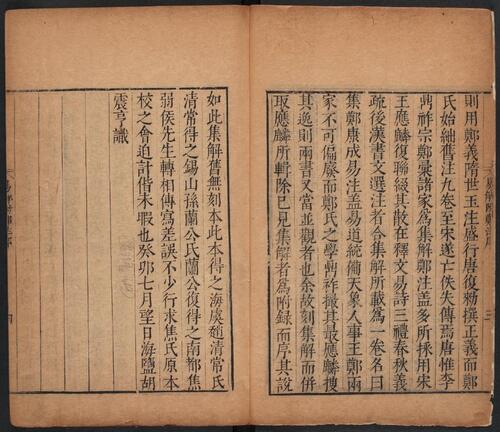 則用鄭義隋世王注盛行唐復勑撰正義而鄭
氏始絀舊注九卷至宋遂亡佚失傳焉唐惟李
鼎祚宗鄭彙諸家為集解鄭注盖多所採用宋
王應麟復聮綴其散在釋文易詩三禮春秋義
疏後漢書文選注者合集解所載為一卷名曰
集鄭康成易注盖易道統備天象人事王鄭兩
家不可偏廢而鄭氏之學鼎祚摭其最應麟捜
其逸則兩書又當並觀者也余故刻集解而併
取應麟所輯除已見集解者為附録而序其説
三
如此集解舊無刻本此本得之海虞趙清常氏
清常得之錫山孫蘭公氏蘭公復得之南都焦
弱侯先生轉相傳寫差誤不少行求焦氏原本
校之會迫計偕未暇也癸卯七月望日海鹽胡
震亨識
四